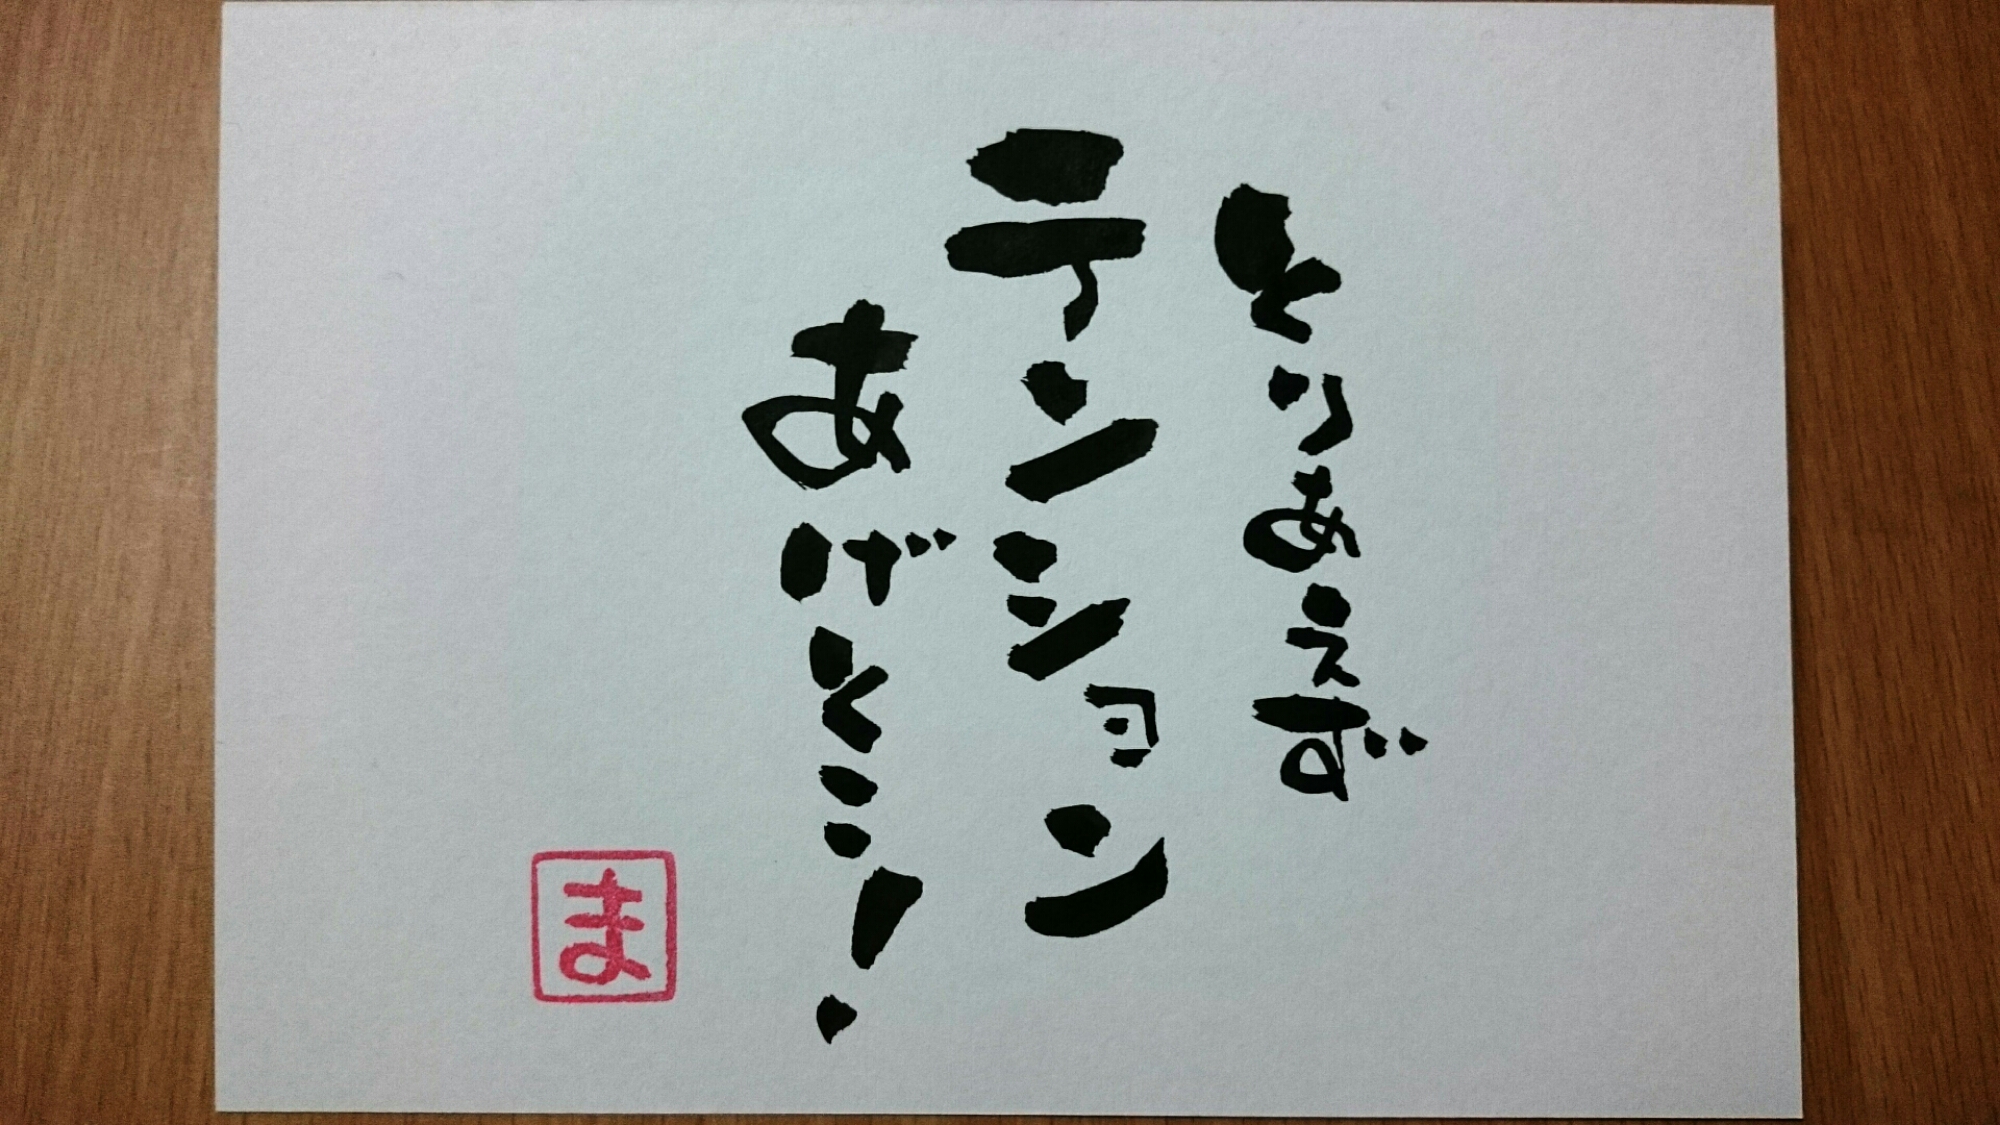 とりあえず
テンション
あげとこ！
ま